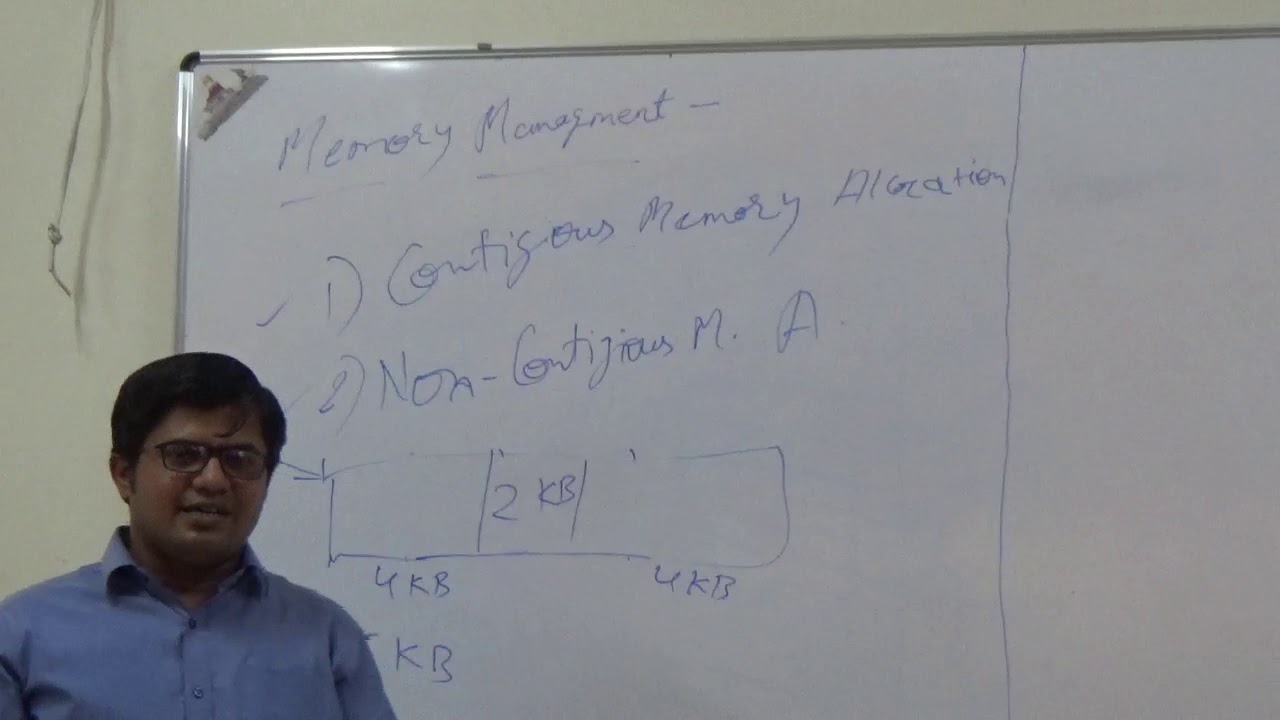 Memory Managment -
1) Contigious Memory Alocation
2) Non-Contigious M. A.
2 KB
4 KB 4 KB
KB